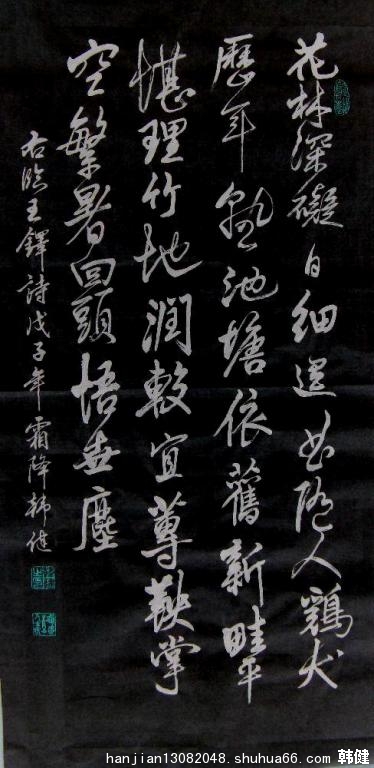 花林深礙日細遥出隱人鷄犬
歷年孰池塘依舊新畦平
堪理竹地潤較宜蓴鞅掌
空繁暑回頭悟世塵
右臨王鐸詩戊子年霜降韩健
hanjian13082048.shuhua66.com 韩健